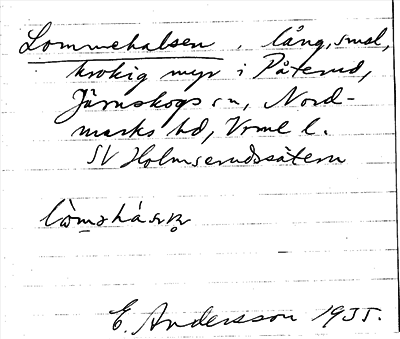 Lommehalsen, lång, smal,
krokig myr i Påterud,
Järnskogs sn, Nord-
marks hd, Vrml l.
SV Holmserudssätern
E. Andersson 1935.